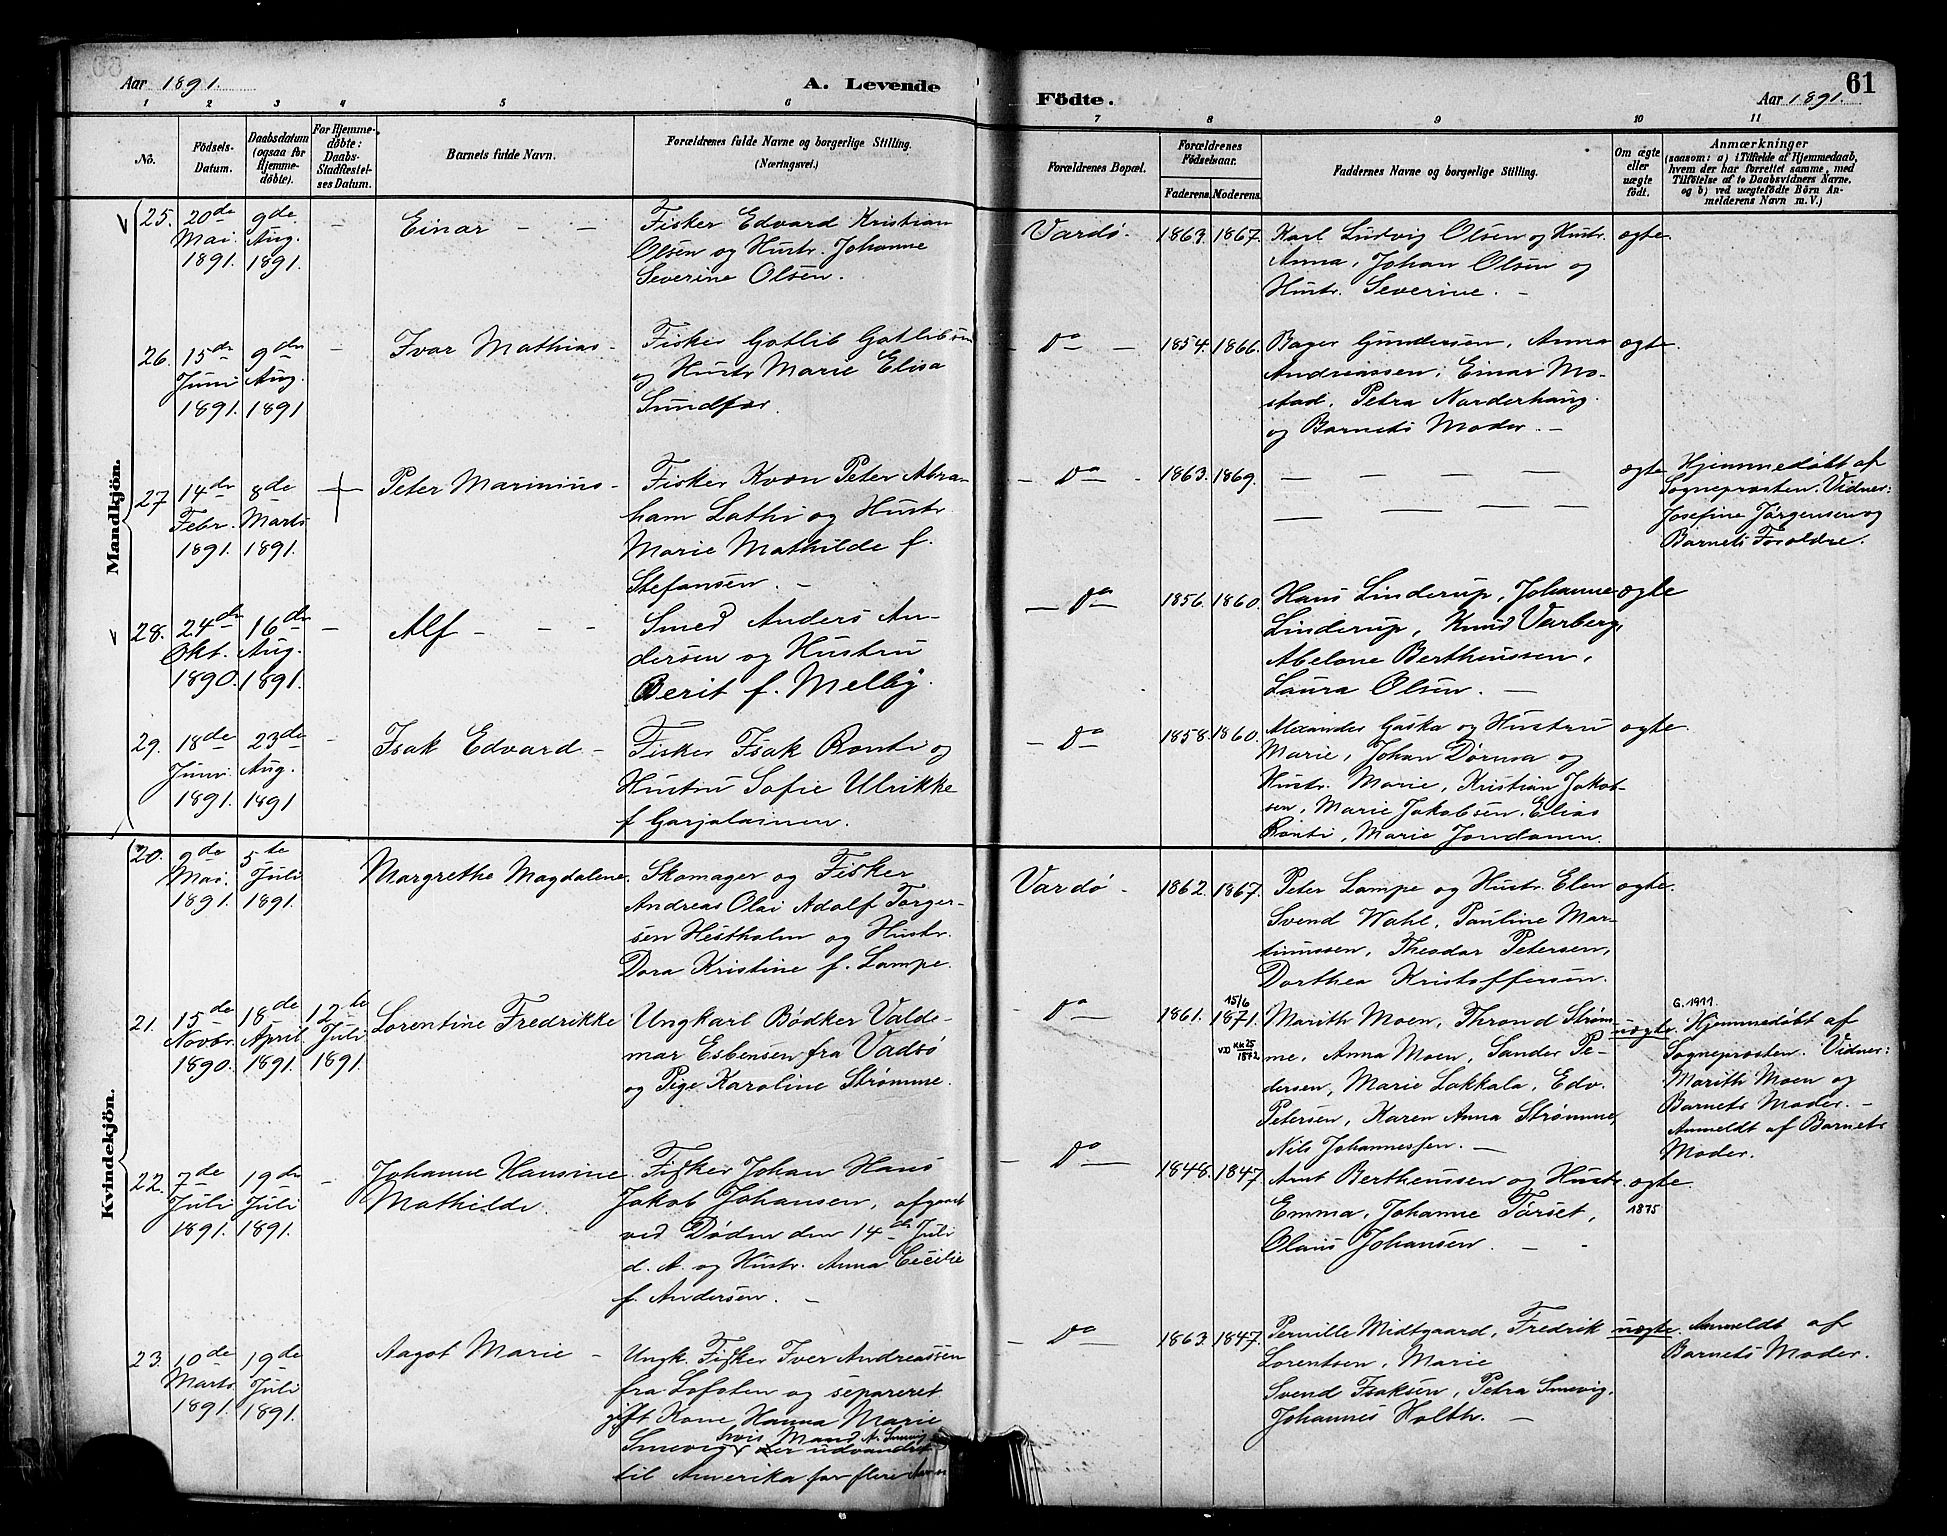 Aar 1891.
A. Levende
Födte.
Aar 1891.
61
1 2 3 4 5 6 7 8 9 10 11
No.
Födsels-
Datum.
Daabsdatum
(ogsaa for
Hjemme-
døbte).
For Hjemme-
døbte:
Daabs-
Stadfæstel-
ses Datum.
Barnets fulde Navn.
Forældrenes fulde Navne og borgerlige Stilling.
(Næringsvei.)
Forældrenes Bopæl.
Forældrenes
Födselsaar.
Faderens. Moderens.
Faddernes Navne og borgerlige Stilling.
Om ægte
eller
uægte
födt.
Anmærkninger
(saasom: a) i Tilfælde af Hjemmedaab,
hvem der har forrettet samme, med
Tilföielse af to Daabsvidners Navne,
og b) ved uægtefödte Börn An-
melderens Navn m. V.)
Mandkjön.
25.
20de
Mai.
1891.
9de
Aug.
1891.
-
Einar - -
Fisker Edvard Kristian
Olsen og Hustr. Johanne
Severine Olsen.
Vardø.
1863. 1867.
Karl Ludvig Olsen og Hustr.
Anna, Johan Olsen og
Hustr. Severine. -
ægte.
26.
15de
Juni
1891.
9de
Aug.
1891
-
Ivar Mathias -
Fisker Gotlib Gotlibsen
og Hustr Marie Elisa
Sundfør.
- Do -
1854. 1866.
Bager Gundersen, Anna
Andreassen, Einar Mo-
stad, Petra Norderhaug
og Barnets Moder. -
ægte.
27
14de
Febr.
1891.
8de
Marts
1891.
Peter Marinius -
Fisker Kvæn Peter Abra-
ham Lathi og Hustr.
Marie Mathilde f.
Stefansen. -
- Do -
1863. 1869.
- - - -
- - - -
ægte
Hjemmedøbt af
Sogneprosten. Vidner:
Josefine Jørgensen og
Barnets Forældre.
28.
24de
Okt.
1890.
16de
Aug.
1891.
-
Alf - - -
Smed Anders An-
dersen og Hustru
Berit f. Melby.
- Do -
1856. 1860.
Hans Linderup, Johanne
Linderup, Knud Varberg,
Abelone Bertheussen,
Laura Olsen. -
ægte
29.
18de
Juni.
1891.
23de
Aug.
1891
-
Isak Edvard -
Fisker Isak Ronti og
Hustru Sofie Ulrikke
f Garjalainen.
- Do -
1858. 1860.
Alexander Gaska og Hustru
Marie, Johan Dørma og
Hustr. Marie, Kristian Jakob-
sen, Marie Jakobsen, Elias
Ronti, Marie
ægte.
Kvindekjön.
20.
9de
Mai.
1891.
5te
Juli
1891.
Margrethe Magdalene.
Skomager og Fisker
Andreas Olai Adolf Torger-
sen Hestholm og Hustr.
Dora Kristine f. Lampe.
Vardø -
1862. 1867.
Peter Lampe og Hustr. Elen
Svend Wahl, Pauline Mar-
tinussen, Theodor Petersen,
Dorthea Kristoffersen.
ægte.
21.
15de
Novbr.
1890.
18de
April
1891.
12te
Juli
1891.
Lorentine Fredrikke
Ungkarl Bødker Valde-
mar Esbensen fra Vadsø
og Pige Karoline Strømme.
- Do -
1861.
15/6
1871.
1872.
Marith Moen, Thrond Strøm-
me, Anna Moen, Sander Pe-
dersen, Marie Lakkala, Edv.
Petersen, Karen Anna Strømme,
Nils Johannessen. -
uægte
G. 1911.
Hjemmedøbt af
Sogneprosten. Vidner:
Marith Moen og
Barnets Moder. -
Anmeldt af Barnets
Moder.
22.
7de
Juli
1891.
19de
Juli
1891.
-
Johanne Hansine
Mathilde.
Fisker Johan Hans
Jakob Johansen, afgaaet
ved Døden den 14de Juli
d. A. og Hustr. Anna Cecilie
f. Andersen. -
- Do -
1848. 1847.
Arnt Bertheussen og Hustr.
Emma, Johanne Tørset,
Olaus Johansen. - -
ægte.
1875
23.
10de
Marts
1891.
19de
Juli
1891.
Aagot Marie -
Ungk. Fisker Iver Andreassen
fra Lofoten og separeret
gift Kone Hanna Marie
Smevig, hvis Mand N. Smevig
er udvandret
til Amerika for flere Aar
- Do -
1863. 1847.
Pernille Midtgaard, Fredrik
Lorentsen, Marie
Svend Isaksen, Petra Smevig,
Johannes Holth. -
uægte.
Anmeldt af
Barnets Moder.